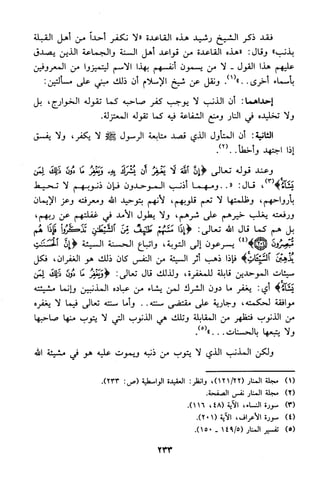 فقد ذكر الشيخ رشيد هذه القاعدة «لا نكفر أحداً من أهل القبلة
بذنب» وقال: «هذه القاعدة من قواعد أهل السنة والجماعة الذين يصدق
عليهم هذا القول ـ لا من يسمون أنفسهم بهذا الاسم ليتميزوا من المعروفين
بأسماء أخرى..»(١). ونقل عن شيخ الإسلام أن ذلك مبني على مسألتين:
إحداهما: أن الذنب لا يوجب كفر صاحبه كما تقوله الخوارج، بل
ولا تخليده في النار ومنع الشفاعة فيه كما تقوله المعتزلة.
الثانية: أن المتأول الذي قصد متابعة الرسول ﷺ لا يكفر، ولا يفسق
إذا اجتهد وأخطأ..(٢).
وعند قوله تعالى ﴿إِنَّ اللَّهَ لَا يَغْفِرُ أَن يُشْرَكَ بِهِ وَيَغْفِرُ مَا دُونَ ذَٰلِكَ لِمَن
يَشَاءُ﴾(٣)، قال: «.. ومهما أذنب الموحدون فإن ذنوبهم لا تحيط
بأرواحهم، وظلمتها لا تعم قلوبهم، لأنهم بتوحيد الله ومعرفته وعز الإيمان
ورفعته يغلب خيرهم على شرهم، ولا يطول الأمد في غفلتهم عن ربهم،
بل هم كما قال الله تعالى: ﴿إِذَا مَسَّهُمْ طَائِفٌ مِّنَ الشَّيْطَانِ تَذَكَّرُوا فَإِذَا هُم
مُّبْصِرُونَ ﴾(٤) يسرعون إلى التوبة، واتباع الحسنة السيئة ﴿إِنَّ الْحَسَنَاتِ
يُذْهِبْنَ السَّيِّئَاتِ﴾ فإذا ذهب أثر السيئة من النفس كان ذلك هو الغفران، فكل
سيئات الموحدين قابلة للمغفرة، ولذلك قال تعالى: ﴿وَيَغْفِرُ مَا دُونَ ذَٰلِكَ لِمَن
يَشَاءُ﴾ أي: يغفر ما دون الشرك لمن يشاء من عباده المذنبين وإنما مشيئته
موافقة لحكمته، وجارية على مقتضى سنته.. وأما سنته تعالى فيما لا يغفره
من الذنوب فتظهر من المقابلة وتلك هي الذنوب التي لا يتوب منها صاحبها
ولا يتبعها بالحسنات...»(٥).
ولكن المذنب الذي لا يتوب من ذنبه ويموت عليه هو في مشيئة الله
(١) مجلة المنار (١٢١/٢٢)، وانظر: العقيدة الواسطية (ص: ٢٣٣).
(٢) مجلة المنار نفس الصفحة.
(٣) سورة النساء، الآية (٤٨، ١١٦).
(٤) سورة الأعراف، الآية (٢٠١).
(٥) تفسير المنار (١٤٩/٥ ـ ١٥٠).
٢٣٣